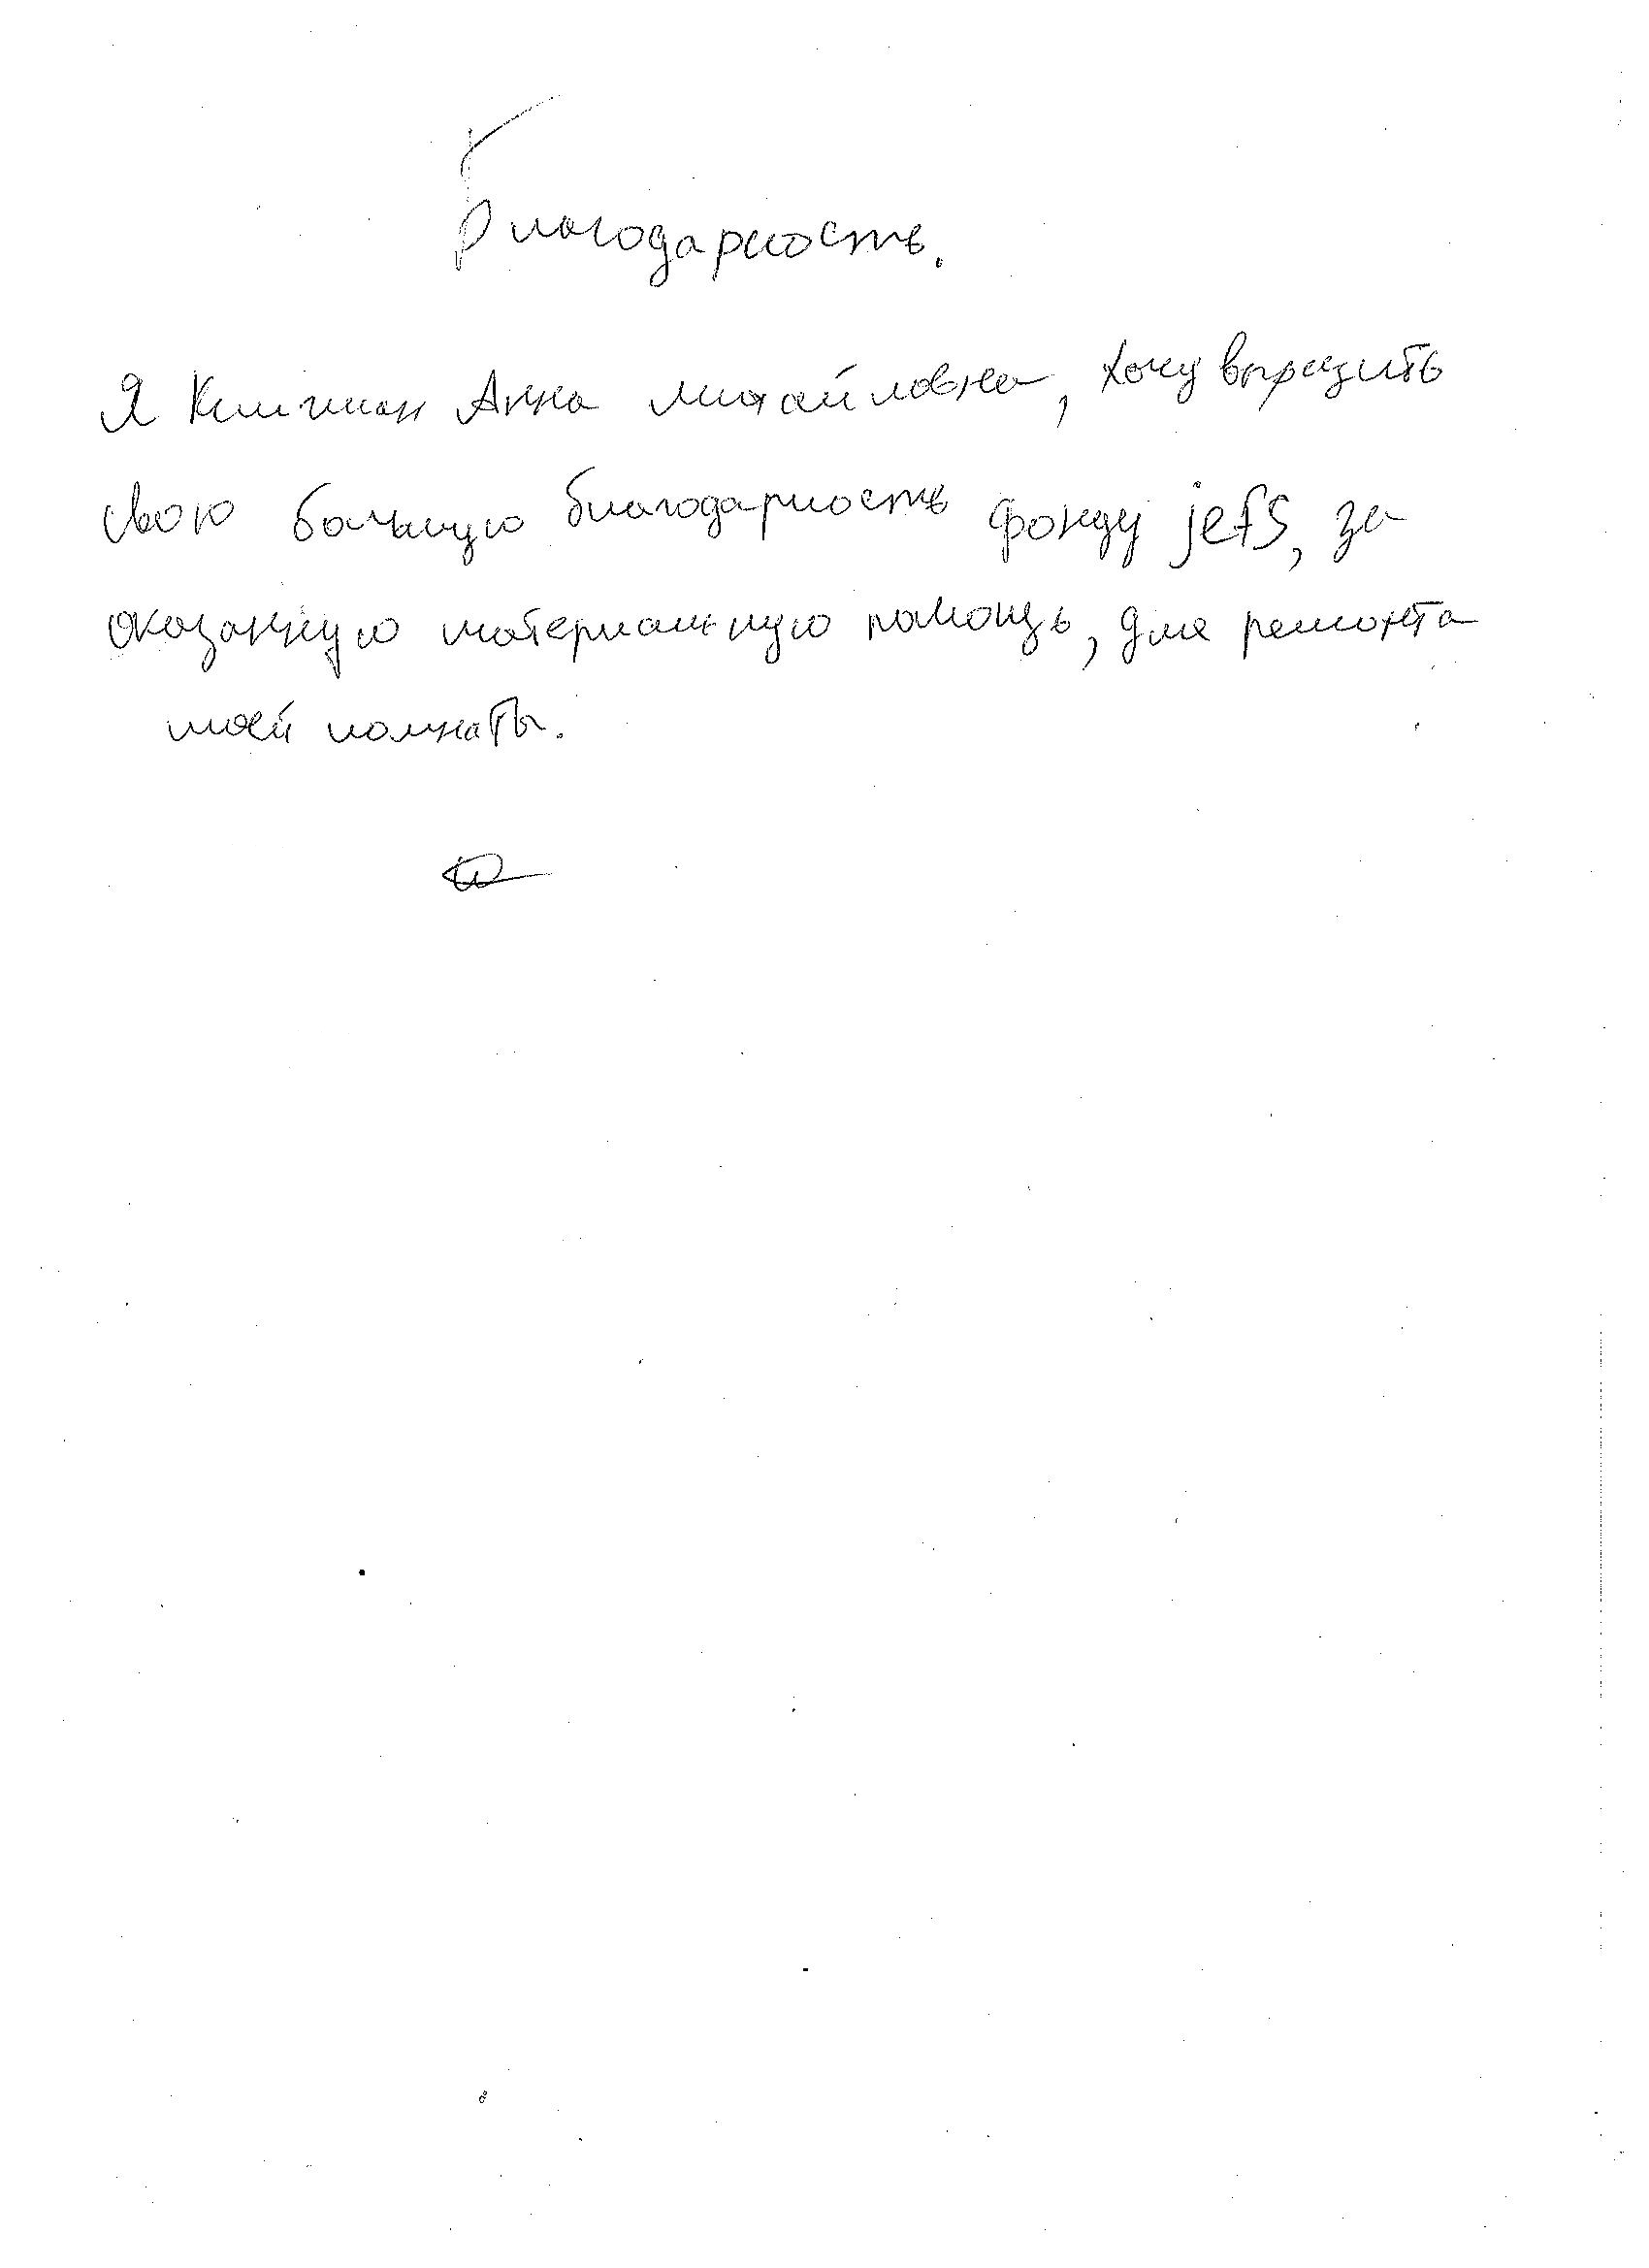 Благодарность.
Я Анна Михайловна, хочу выразить
свою большую благодарность фонду jefs, за
оказанную материальную помощь, для ремонта
моей комнаты.